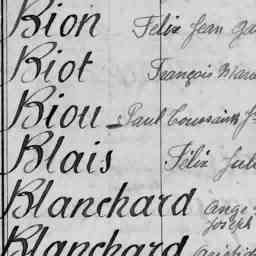 Bion Félix Jean
Biot François
Biou Paul Toussaint
Blais Félix
Blanchard Ange
Joseph
Blanchard